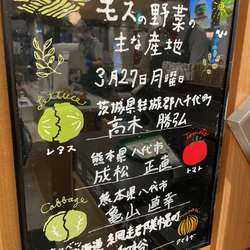 モスの野菜の
主な産地
3月27日月曜日
Lettuce
レタス
茨城県結城郡八千代町
高木 勝弘
Tomato
トマト
熊本県 八代市
成松 正直
Cabbage
キャベツ
熊本県 八代市
亀山 直幸